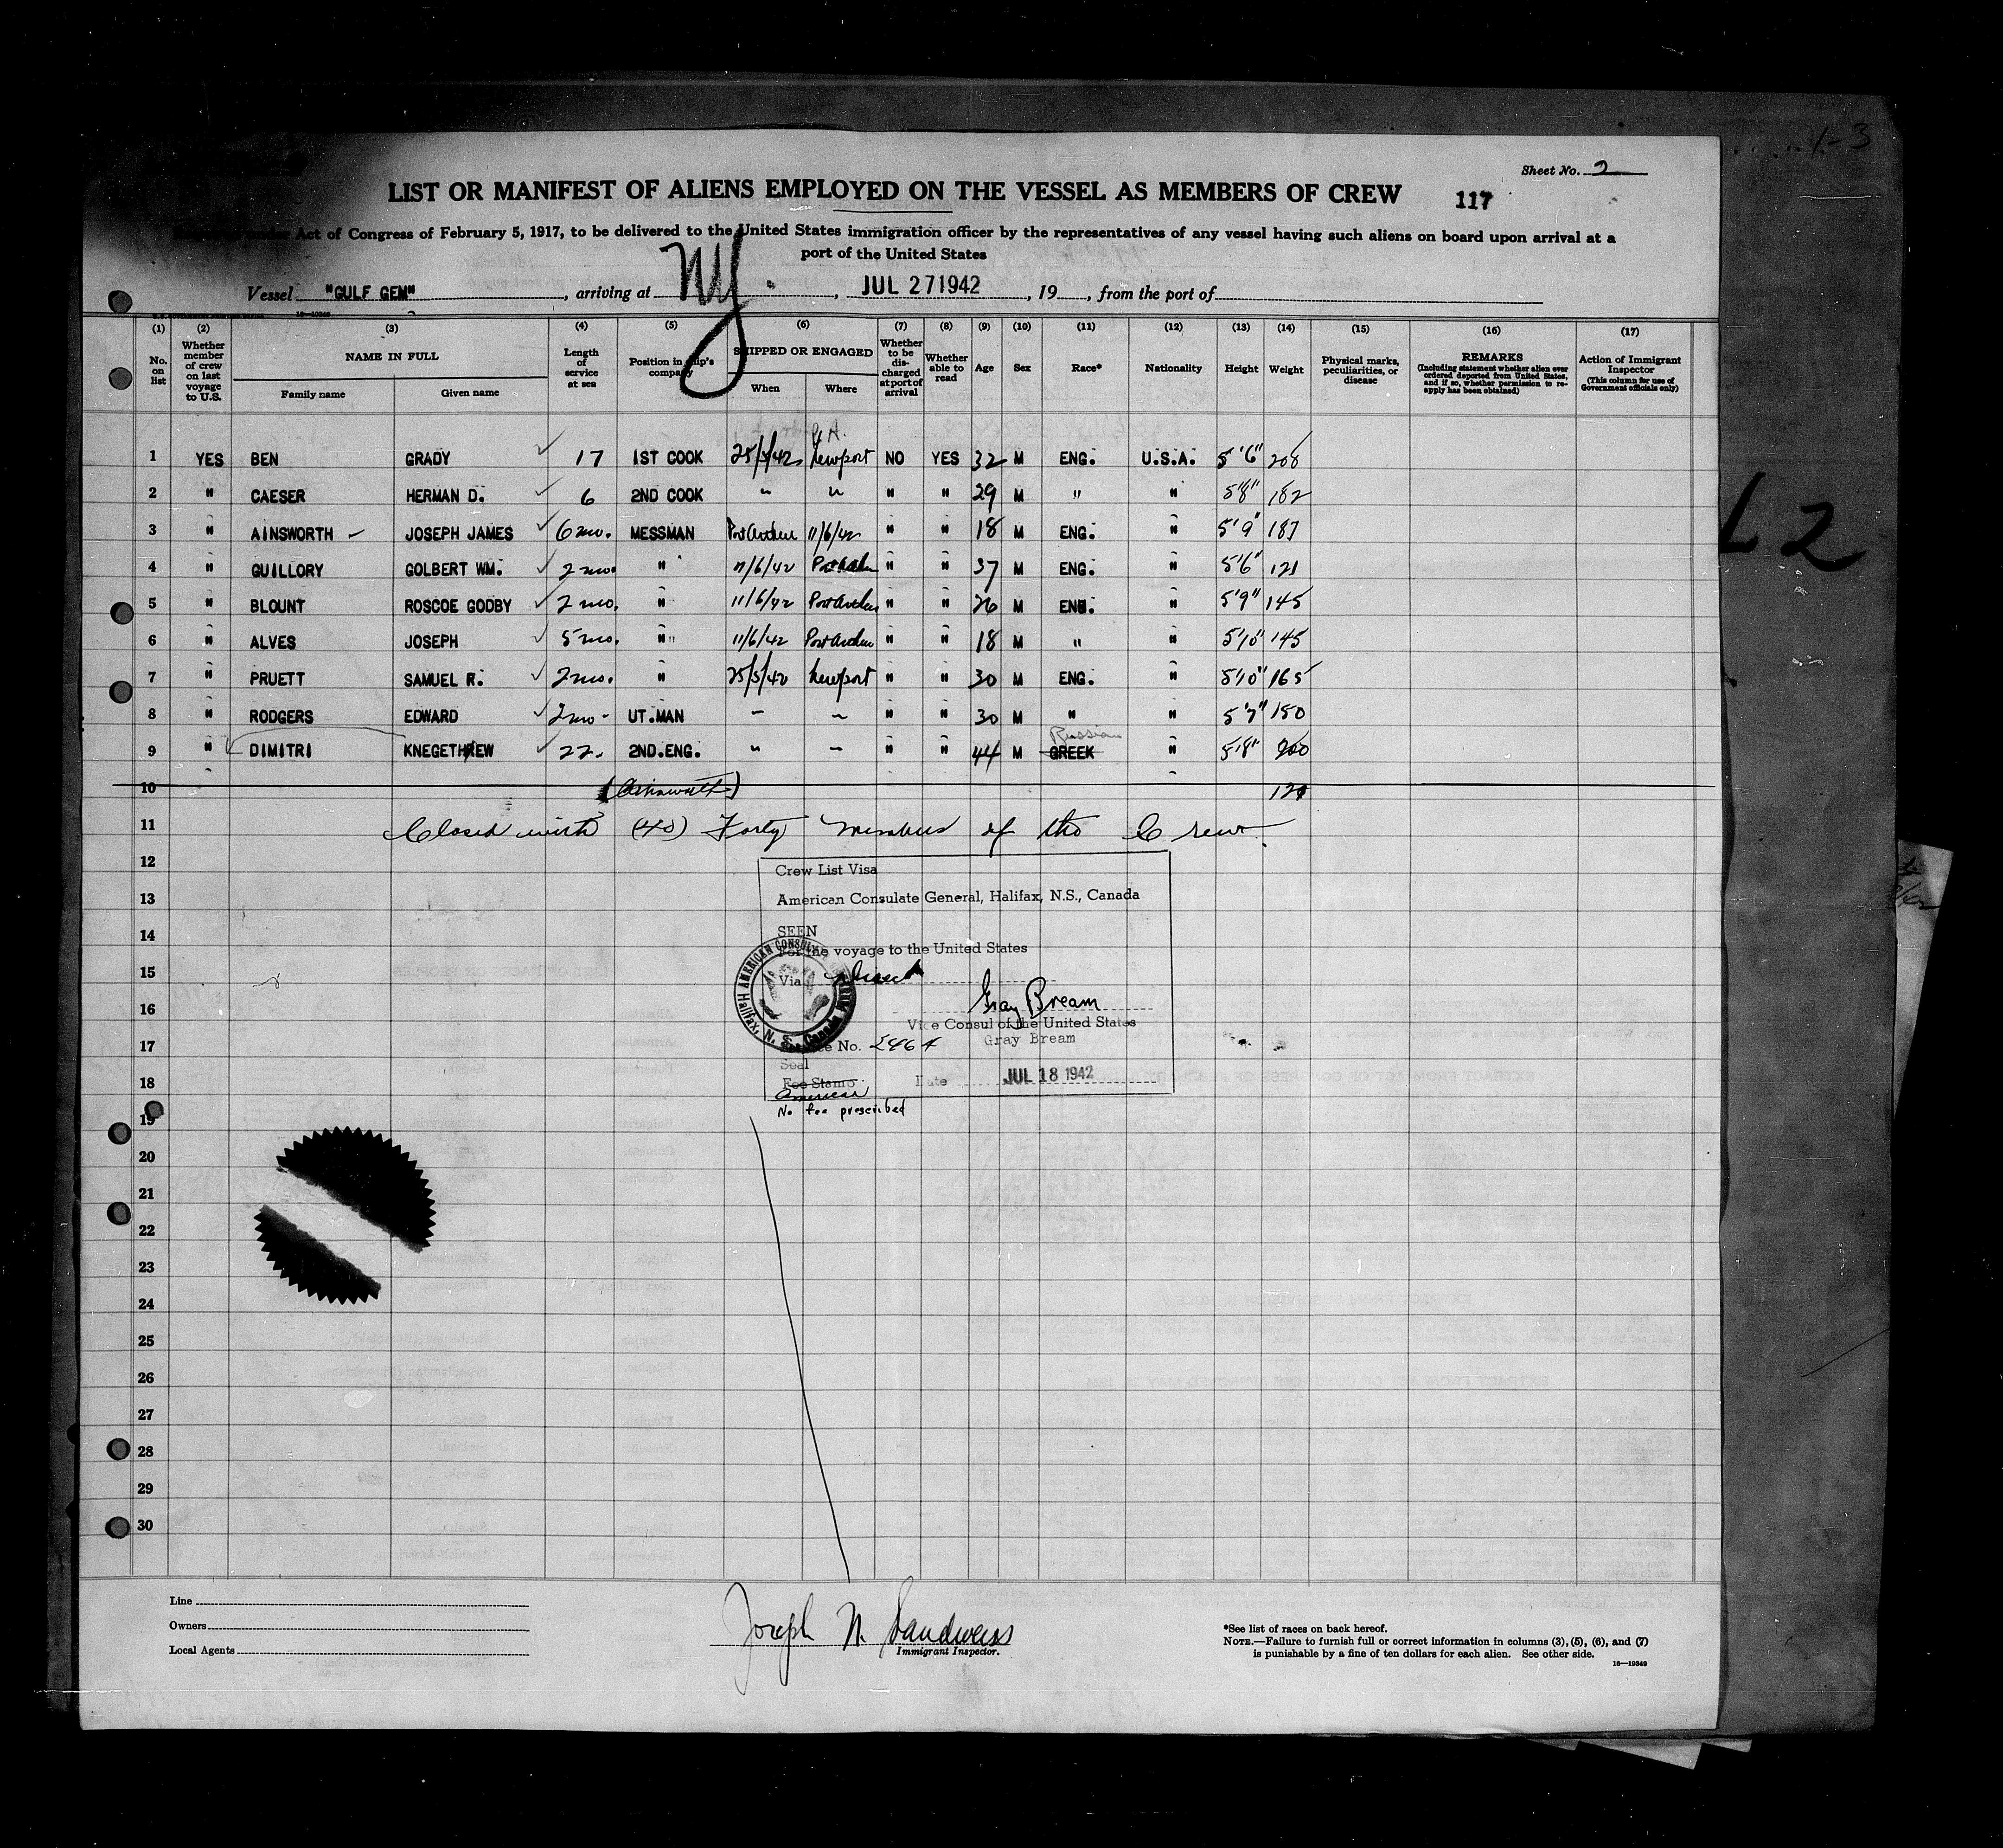 1-3
Sheet No. 2
LIST OR MANIFEST OF ALIENS EMPLOYED ON THE VESSEL AS MEMBERS OF CREW 117
under Act of Congress of February 5, 1917, to be delivered to the United States immigration officer by the representatives of any vessel having such aliens on board upon arrival at a
port of the United States
Vessel "GULF GEM", arriving at NY., JUL 27 1942, 19 , from the port of
(1) (2) (3) (4) (5) (6) (7) (8) (9) (10) (11) (12) (13) (14) (15) (16) (17)
No. on list
Whether member of crew on last voyage to U.S.
NAME IN FULL
Family name Given name
Length of service at sea
Position in ship's company
SHIPPED OR ENGAGED
When Where
Whether to be discharged at port of arrival
Whether able to read
Age
Sex
Race*
Nationality
Height
Weight
Physical marks, peculiarities, or disease
REMARKS
(Including statement whether alien ever ordered deported from United States, and if so, whether permission to reapply has been obtained)
Action of Immigrant Inspector
(This column for use of Government officials only)
1 YES BEN GRADY 17 1ST COOK 25/5/42 Newport NO YES 32 M ENG. U.S.A. 5'6" 208
2 " CAESER HERMAN D. 6 2ND COOK " " " " 29 M " " 5'8" 182
3 " AINSWORTH JOSEPH JAMES 6 mo. MESSMAN Port Arthur 11/6/42 " " 18 M ENG. " 5'9" 187
4 " GUILLORY GOLBERT WM. 2 mo. " 11/6/42 Port Arthur " " 37 M ENG. " 5'6" 121
5 " BLOUNT ROSCOE GODBY 2 mo. " 11/6/42 Port Arthur " " 26 M ENG. " 5'9" 145
6 " ALVES JOSEPH 5 mo. " 11/6/42 Port Arthur " " 18 M " " 5'10" 145
7 " PRUETT SAMUEL R. 2 mo. " 25/5/42 Newport " " 30 M ENG. " 5'10" 165
8 " RODGERS EDWARD 2 mo - UT.MAN " " " " 30 M " " 5'7" 150
Russian
9 " DIMITRI KNEGETHREW 22. 2ND.ENG. " " " " 44 M GREEK " 5'8" 200
10 (Ainsworth) 121
11 Closed with (40) Forty members of the Crew.
12
Crew List Visa
13 American Consulate General, Halifax, N.S., Canada
14 SEEN
For the voyage to the United States
15 Via direct
16 Gray Bream
Vice Consul of the United States
17 No. 2464 Gray Bream
Seal
18 Fee Stamp Date JUL 18 1942
American
No fee prescribed
AMERICAN CONSUL
Halifax, N. S. Canada
19
20
21
22
23
24
25
26
27
28
29
30
L 2
Line
Owners
Local Agents
Joseph N. Sandweiss
Immigrant Inspector.
*See list of races on back hereof.
NOTE.—Failure to furnish full or correct information in columns (3), (5), (6), and (7)
is punishable by a fine of ten dollars for each alien. See other side.
16—19349